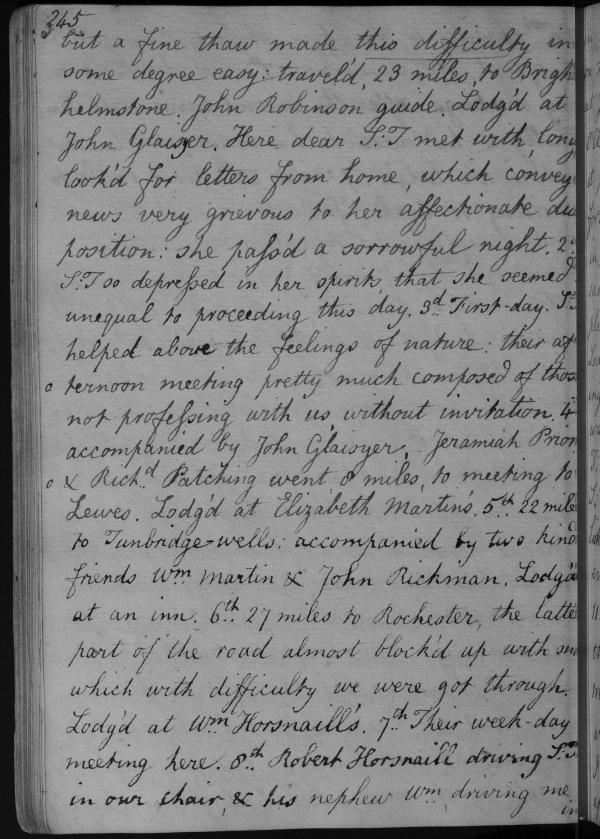 245
but a fine thaw made this difficulty in
some degree easy: travel'd, 23 miles, to Brigh
helmstone. John Robinson guide. Lodg'd at
John Glaisyer. Here, dear S:T met with, long
look'd for letters from home, which convey
news very grievous to her affectionate dis
position: she pass'd a sorrowful night. 2d
S:T so depressed in her spirits, that she seemed
unequal to proceeding this day. 3d First-day. S:T
helped above the feelings of nature: their af
o ternoon meeting pretty much composed of thos
not professing with us without invitation. 4th
accompanied by John Glaisyer, Jeramiah Prior
o & Richd Patching went 8 miles, to meeting to
Lewes. Lodg'd at Elizabeth Martin's. 5th 22 mile
to Tunbridge-wells: accompanied by two kind
friends Wm Martin & John Rickman. Lodg'd
at an inn. 6th 27 miles to Rochester, the latte
part of the road almost block'd up with sno
which with difficulty we were got through.
Lodg'd at Wm Horsnaill's. 7th Their week-day
meeting here. 8th Robert Horsnaill driving S:T
in our chair, & his nephew Wm driving me
in